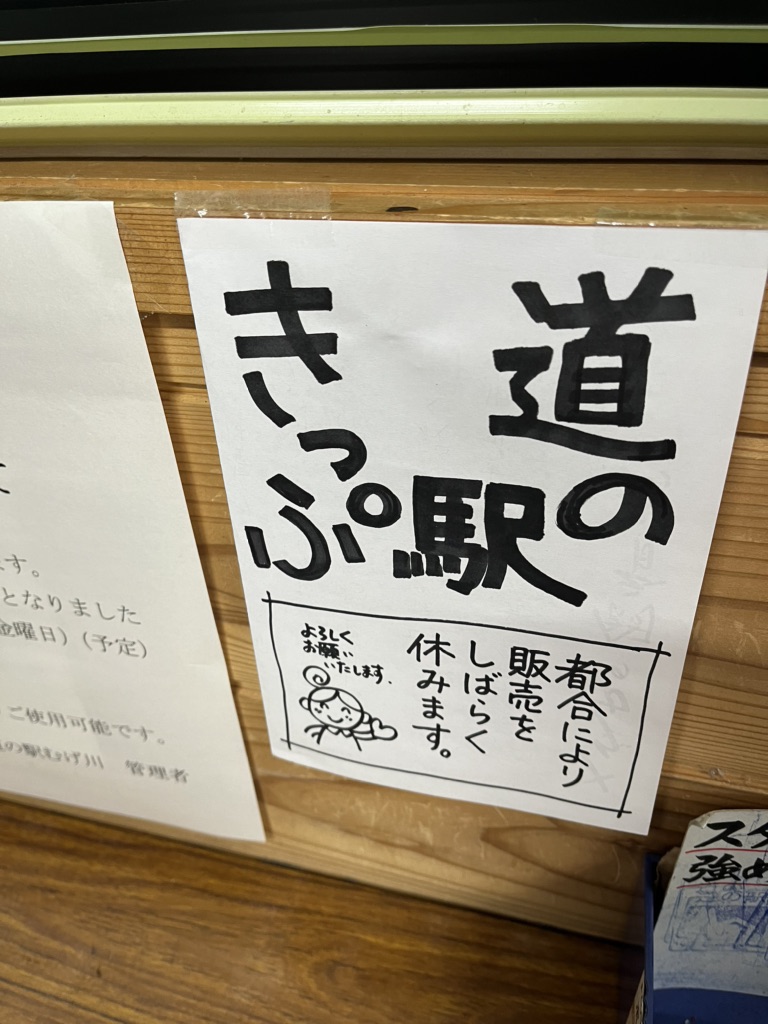 道の駅
きっぷ
都合により
販売を
しばらく
休みます。
よろしく
お願い
いたします.
す。
となりました
金曜日）（予定）
ご使用可能です。
の駅むげ川　管理者
スタ
強め